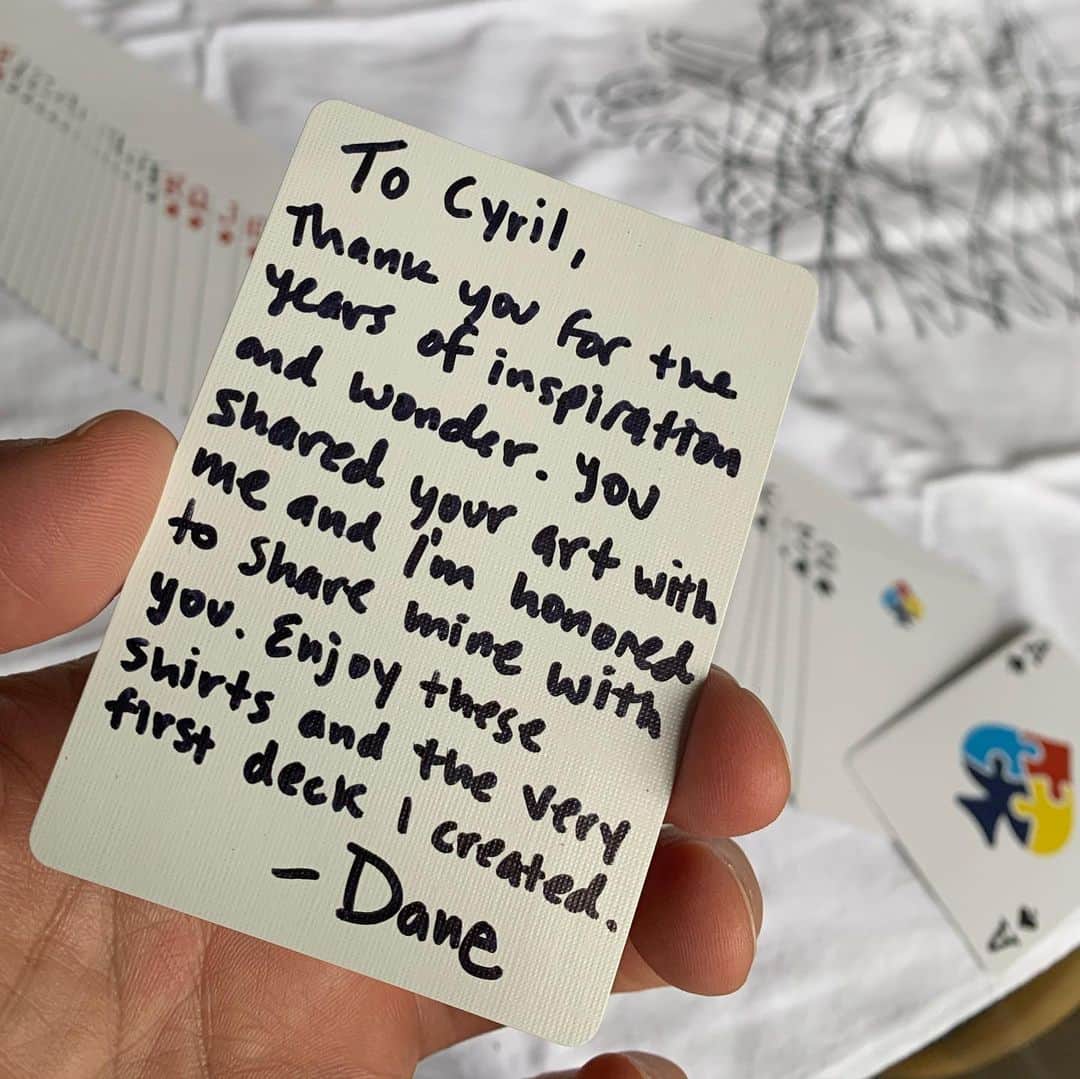 To Cyril,
Thank you for the
years of inspiration
and wonder. You
shared your art with
me and I'm honored
to share mine with
you. Enjoy these
shirts and the very
first deck I created.
- Dane